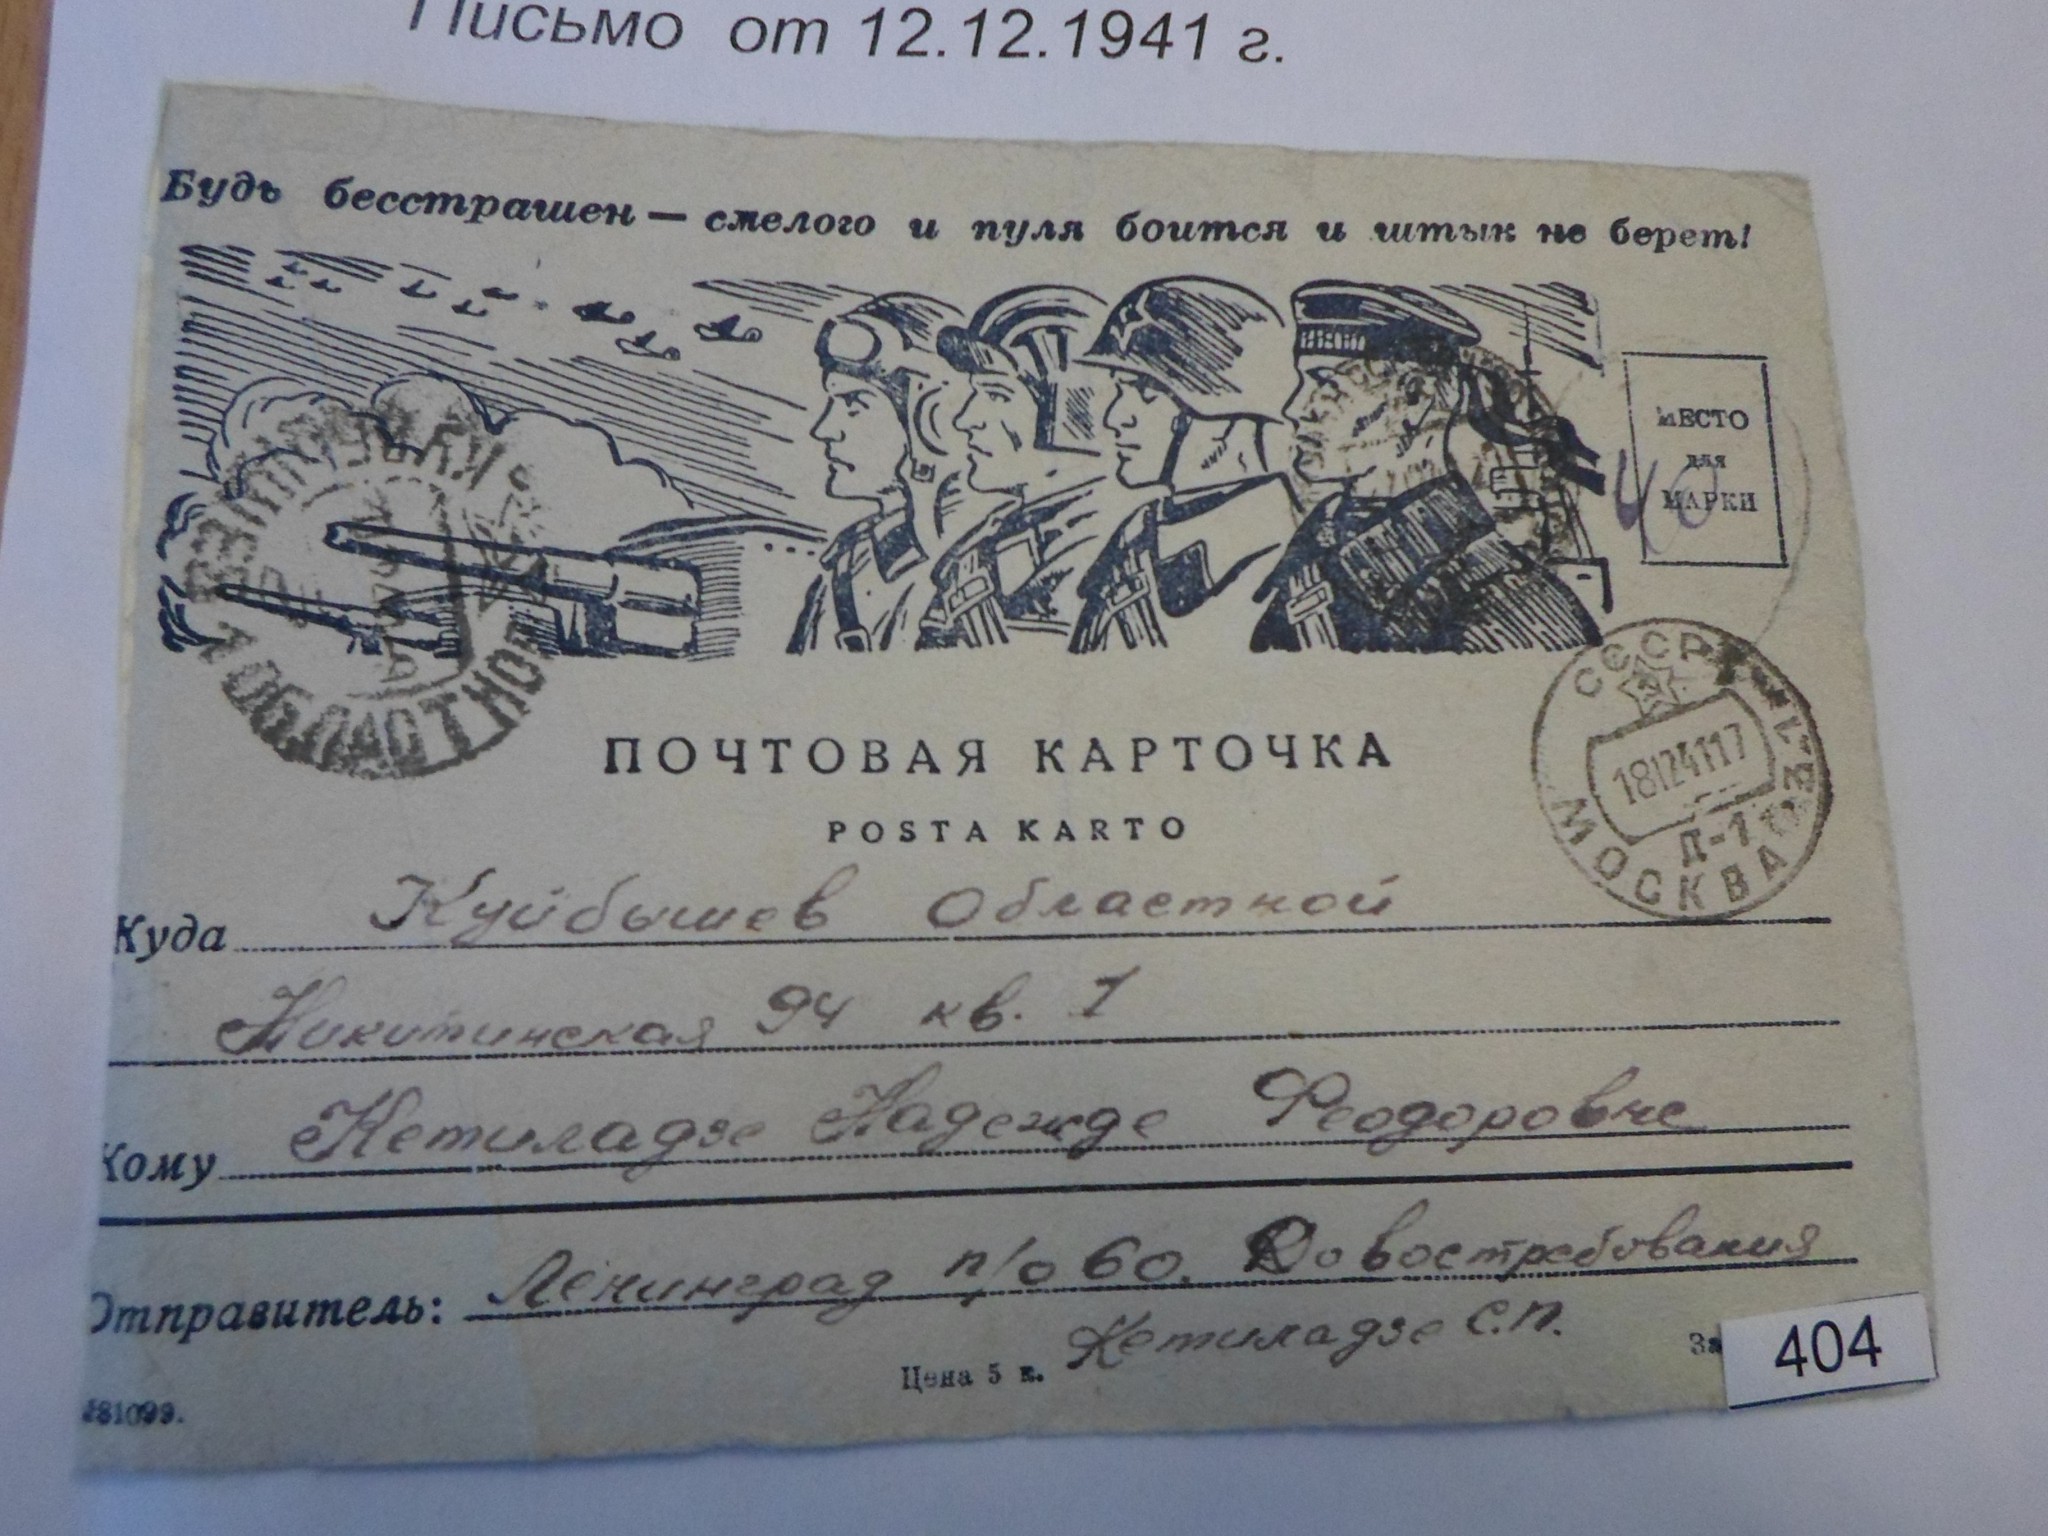 Письмо от 12.12.1941 г.
Будь бесстрашен — смелого и пуля боится и штык не берет!
МЕСТО
для
МАРКИ
40
ПОЧТОВАЯ КАРТОЧКА
POSTA KARTO
СССР
18124117
Д-1
МОСКВА
ОБЛАСТНОЙ
Куда Куйбышев Областной
Никитинская 94 кв. 1
Кому Кетиладзе Надежде Феодоровне
Отправитель: Ленинград п/о 60. До востребования
Кетиладзе С.П.
Цена 5 к.
За
404
81099.